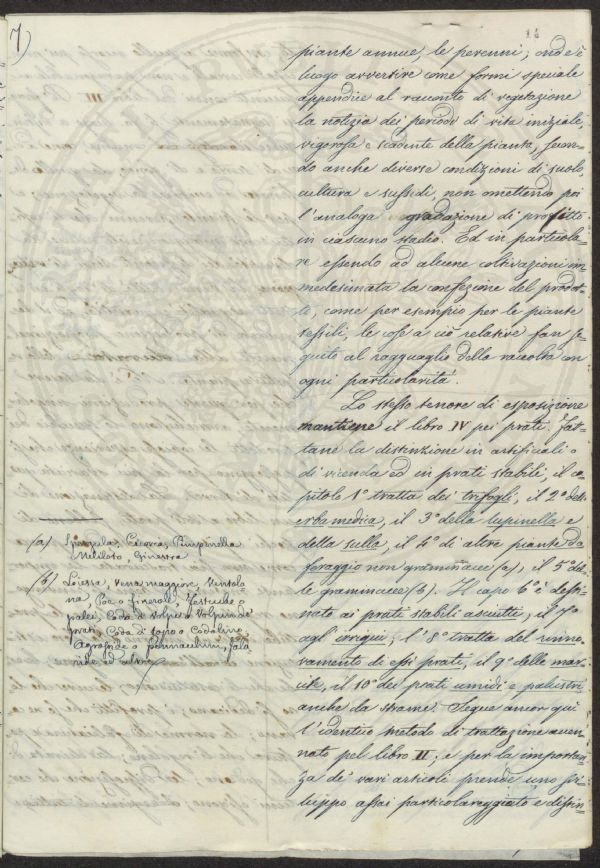 7)
14
piante annue, le perenni; ond'è
luogo avvertire come formi speciale
appendice al racconto di vegetazione
la notizia dei periodi di vita iniziale,
vigorosa e scadente della pianta, secon-
do anche diverse condizioni di suolo,
cultura e sussidi, non omettendo poi
l'analoga gradazione di profitto
in ciascuno stadio. Ed in particola-
re essendo ad alcune coltivazioni im-
medesimata la confezione del prodot-
to, come per esempio per le piante
tessili, le cose a ciò relative fan se-
guito al ragguaglio della raccolta con
ogni particolarità.
Lo stesso tenore di esposizione
mantiene il libro IV pei prati. Fat-
tane la distinzione in artificiali o
di vicenda ed in prati stabili, il ca-
pitolo 1° tratta dei trifogli, il 2° dell'
erba medica, il 3° della lupinella e
della sulla, il 4° di altre piante da
foraggio non graminacee (a), il 5° del-
le graminacee (b). Il capo 6° è desti-
nato ai prati stabili asciutti, il 7°
agl'irrigui; l'8° tratta del rinno-
vamento di essi prati, il 9° delle mar-
cite, il 10° dei prati umidi e palustri
anche da strame. Segue ancor qui
l'identico metodo di trattazione accen-
nato pel libro II, e per la importan-
za de' vari articoli prende uno svi-
luppo assai particolareggiato e distin-
(a) Spergola, Pimpinella
Meliloto, Ginestra
(b) Loiessa, Vena maggiore, Ventola-
na, Poe o fienarole, Festuche o
palei, Coda di volpe o Volpino de'
prati, Coda di topo o Codolino
Agrostide o pennacchini, Fala-
ride ed altre